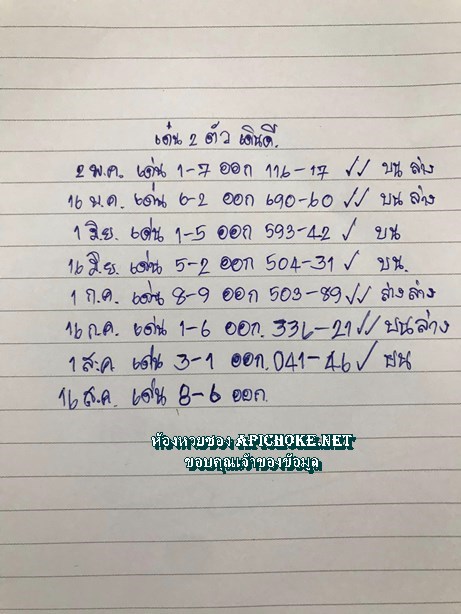 เด่น 2 ตัว เดินดี.
2 พ.ค. เด่น 1-7 ออก 116-17 ✓✓ บน ล่าง
16 พ.ค. เด่น 6-2 ออก 690-60 ✓✓ บน ล่าง
1 มิย. เด่น 1-5 ออก 593-42 ✓ บน
16 มิย. เด่น 5-2 ออก 504-31 ✓ บน.
1 ก.ค. เด่น 8-9 ออก 503-89 ✓✓ ล่าง ล่าง
16 ก.ค. เด่น 1-6 ออก. 336-21 ✓✓ บน ล่าง
1 ส.ค เด่น 3-1 ออก. 041-46 ✓ บน
16 ส.ค. เด่น 8-6 ออก.
ห้องหวยซอง APICHOKE.NET
ขอบคุณเจ้าของข้อมูล